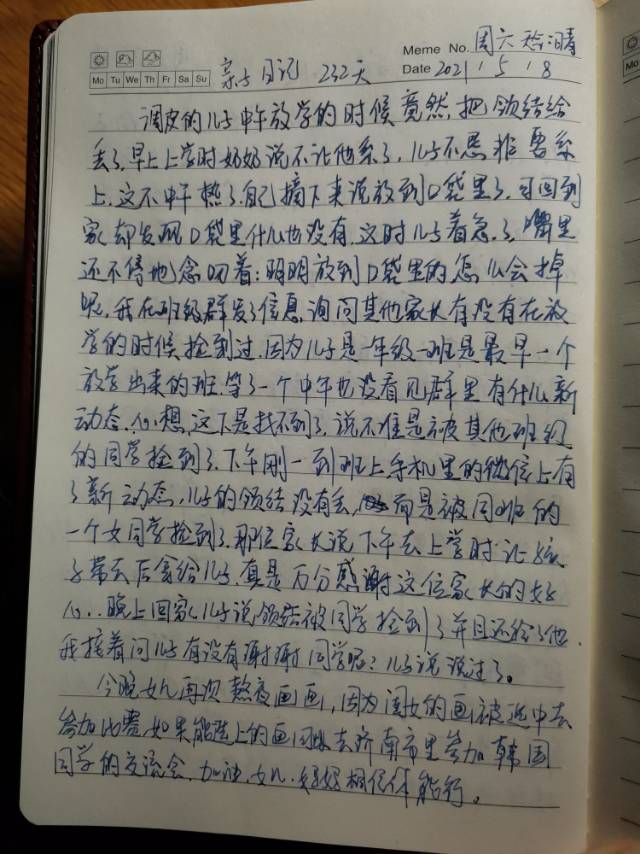 Meme No. 周六 晴
Mo Tu We Th Fr Sa Su 亲子日记 232天 Date 2021 / 5 / 8
调皮的儿子中午放学的时候竟然把领结给
丢了,早上上学时奶奶说不让他系了,儿子不愿非要系
上,这不中午热了,自己摘下来说放到口袋里了,可回到
家却发现口袋里什么也没有,这时儿子着急了,嘴里
还不停地念叨着:明明放到口袋里的怎么会掉
呢,我在班级群发了信息,询问其他家长有没有在放
学的时候捡到过,因为儿子是一年级一班是最早一个
放学出来的班,等了一个中午也没看见群里有什么新
动态,心想,这下是找不到了,说不准是被其他班级
的同学捡到了,下午刚一到班上手机里的微信上有
了新动态,儿子的领结没有丢,而是被同班的
一个女同学捡到了,那位家长说下午去上学时让孩
子带去后会给儿子,真是万分感谢这位家长的好
心..晚上回家儿子说领结被同学捡到了并且还给了他,
我接着问儿子有没有谢谢同学呢?儿子说说过了。
今晚女儿再次熬夜画画,因为闺女的画被选中去
参加比赛,如果能选上的画去济南市里参加韩国
同学的交流会,加油,女儿,妈妈相信你能行。